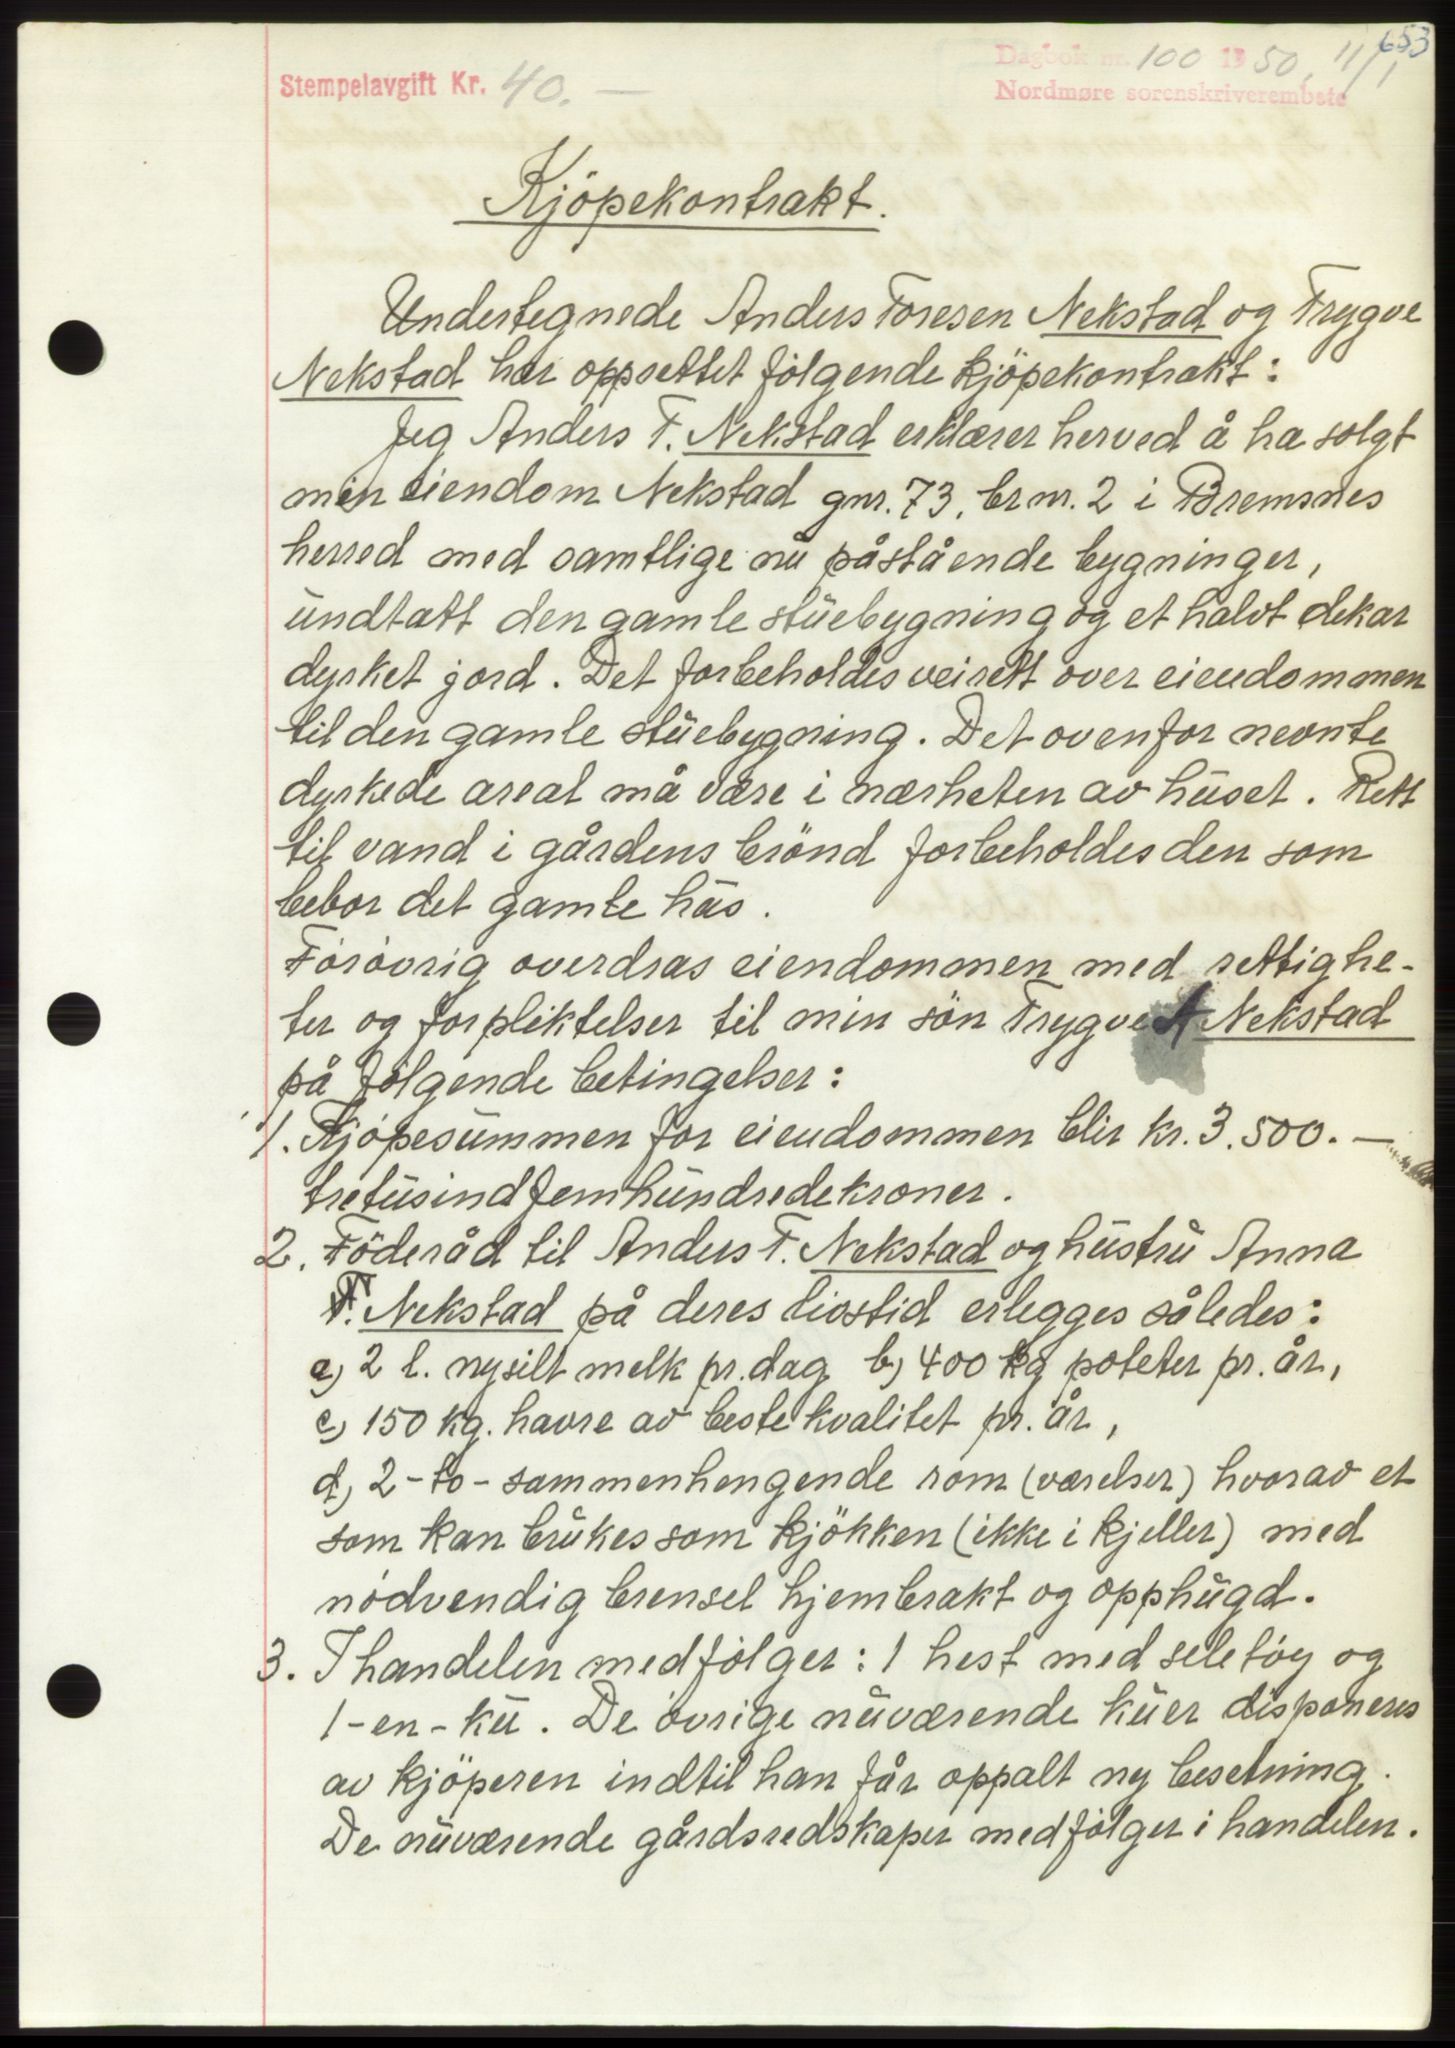 653
Dagbok nr. 100 1950, 11/1
Stempelavgift Kr. 40.—
Nordmøre sorenskriverembete
Kjöpekontrakt.
Undertegnede Anders Toresen Nekstad og Trygve
Nekstad har oppsettet følgende kjöpekontrakt:
Jeg Anders T. Nekstad erklærer herved å ha solgt
min eiendom Nekstad gnr. 73, brnr. 2 i Bremsnes
herred med samtlige nu påstående bygninger,
undtatt den gamle stuebygning og et halvt dekar
dyrket jord. Det forbeholdes veirett over eiendommen
til den gamle stuebygning. Det ovenfor nevnte
dyrkede areal må være i nærheten av huset. Rett
til vand i gårdens brönd forbeholdes den som
bebor det gamle hus.
Forövrig overdras eiendommen med rettighe-
ter og forpliktelser til min sön Trygve A Nekstad
på fölgende betingelser:
1. Kjöpesummen for eiendommen blir kr. 3.500.—
tretusindfemhundredekroner.
2. Föderåd til Anders T. Nekstad og hustru Anna
T. Nekstad på deres livstid erlegges således:
a) 2 l. nysilt melk pr. dag b) 400 kg poteter pr. år,
c) 150 kg. havre av beste kvalitet pr. år,
d) 2-to-sammenhengende rom (værelser) hvorav et
som kan brukes som kjökken (ikke i kjeller) med
nödvendig brensel hjembrakt og opphugd.
3. I handelen medfölger: 1 hest med seletöy og
1-en-ku. De övrige nuværende kuer disponeres
av kjöperen indtil han får oppalt ny besetning.
De nuværende gårdsredskaper medfölger i handelen.